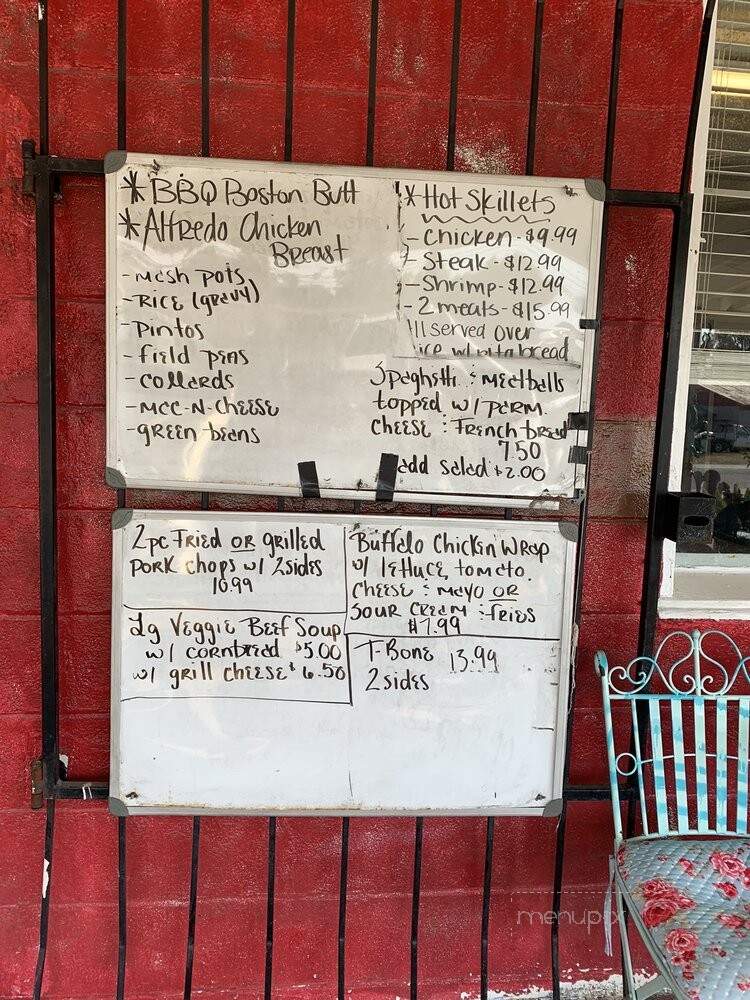 *BBQ Boston Butt
*Alfredo Chicken
Breast
-mash pots
-Rice (gravy)
-pintos
-field peas
-collards
-mac-n-cheese
-green beans
*Hot Skillets
-Chicken-$9.99
-Steak-$12.99
-Shrimp-$12.99
-2 meats-$15.99
All served over
rice w/ pita bread
Spaghetti & meatballs
topped w/ parm.
cheese & French bread
7.50
add salad $2.00
2pc Fried OR grilled
pork chops w/ 2sides
10.99
Lg Veggie Beef Soup
w/ cornbread $5.00
w/ grill cheese $6.50
Buffalo Chicken Wrap
w/ lettuce, tomato.
cheese & mayo OR
sour cream & fries
$7.99
T-Bone 13.99
2sides
menupix